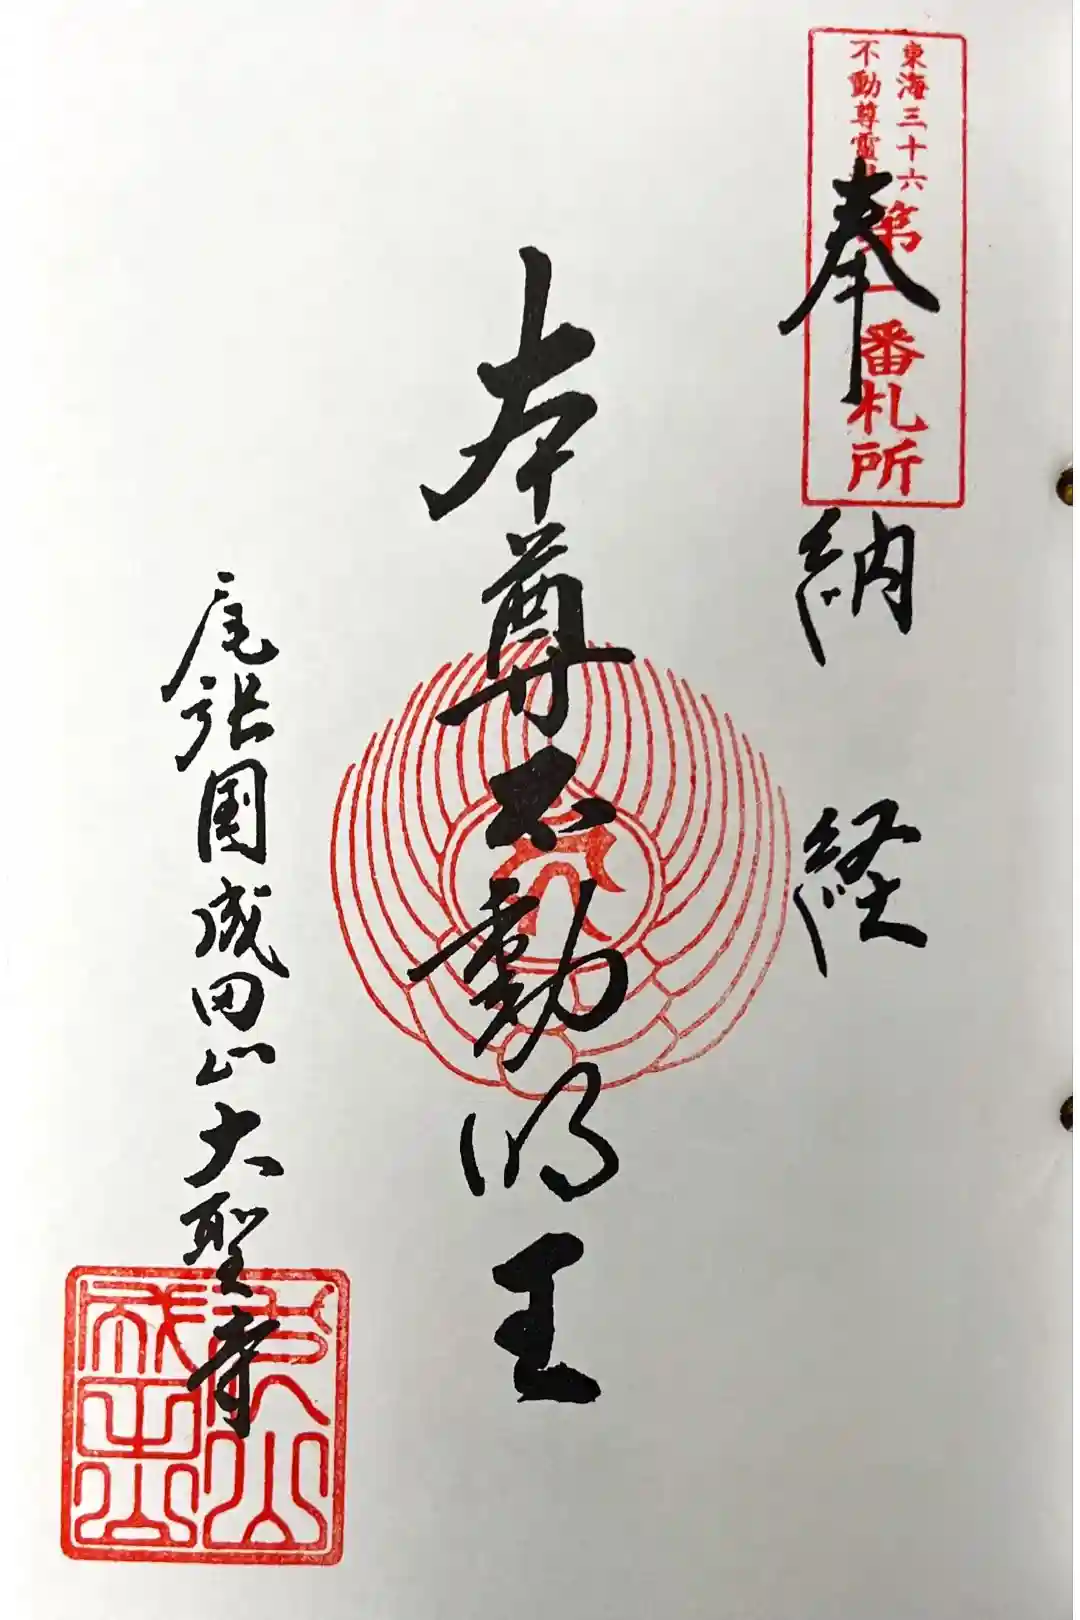 東海三十六
不動尊霊
第一番札所
奉納経
本尊不動明王
尾張国成田山大聖寺